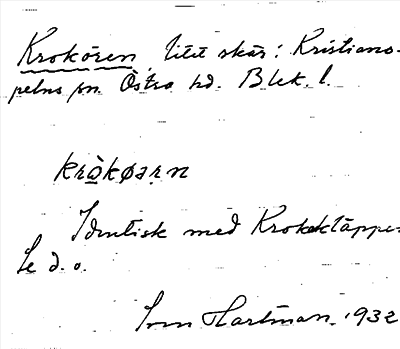 Krokören, litet skär: Kristiano-
pels sn. Östra hd. Blek. l.
kràkøarn
Identisk med Krokeklåppe.
Se d. o.
Sven Hartman 1932